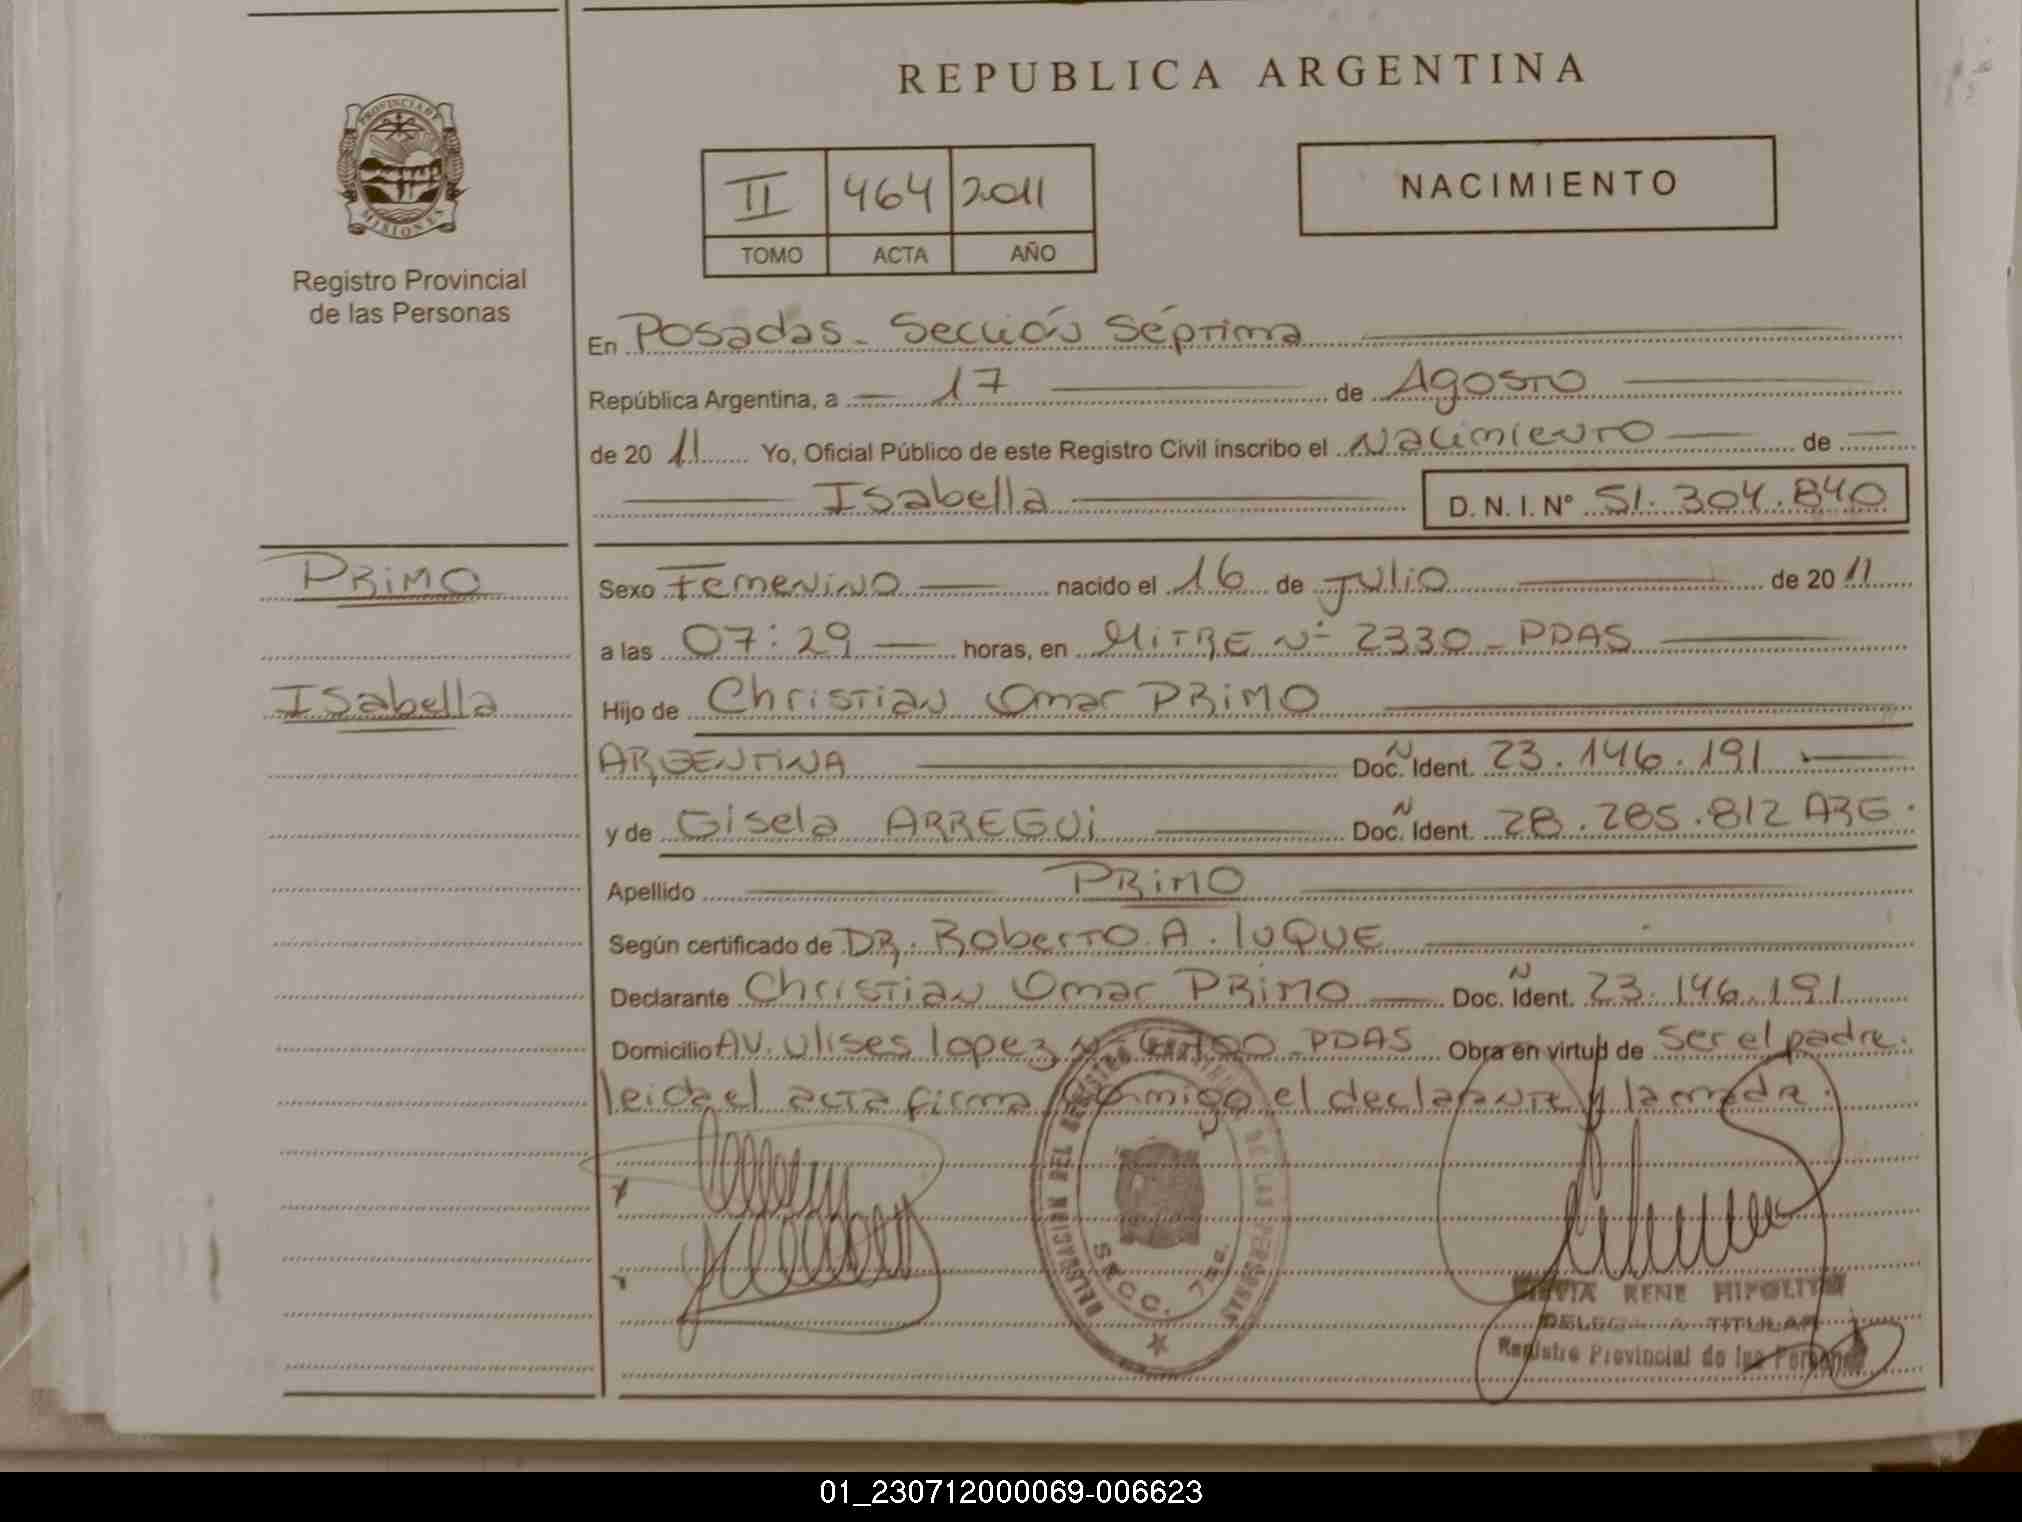 REPUBLICA ARGENTINA
PROVINCIA DE
MISIONES
Registro Provincial
de las Personas
II 464 2011
TOMO ACTA AÑO
NACIMIENTO
En Posadas - Sección Séptima
República Argentina, a 17 de Agosto
de 20 11 Yo, Oficial Público de este Registro Civil inscribo el Nacimiento de
Isabella D. N. I. N° 51.304.840
PRIMO
Isabella
Sexo Femenino nacido el 16 de Julio de 20 11
a las 07:29 horas, en MITRE N° 2330 - PDAS
Hijo de Christian Omar PRIMO
ARGENTINA Doc. Ident. N 23.146.191
y de Gisela ARREGUI Doc. Ident. N 28.285.812 ARG.
Apellido PRIMO
Según certificado de DR. Roberto A. LUQUE
Declarante Christian Omar PRIMO Doc. Ident. N 23.146.191
Domicilio AV. Ulises Lopez PDAS Obra en virtud de ser el padre.
leida el acta firma conmigo el declarante y la madre.
DELEGACION DEL REGISTRO DE LAS PERSONAS
SECC. 7ma.
RENE HIPOLITO
TITULAR
Registro Provincial de las Personas
01_230712000069-006623